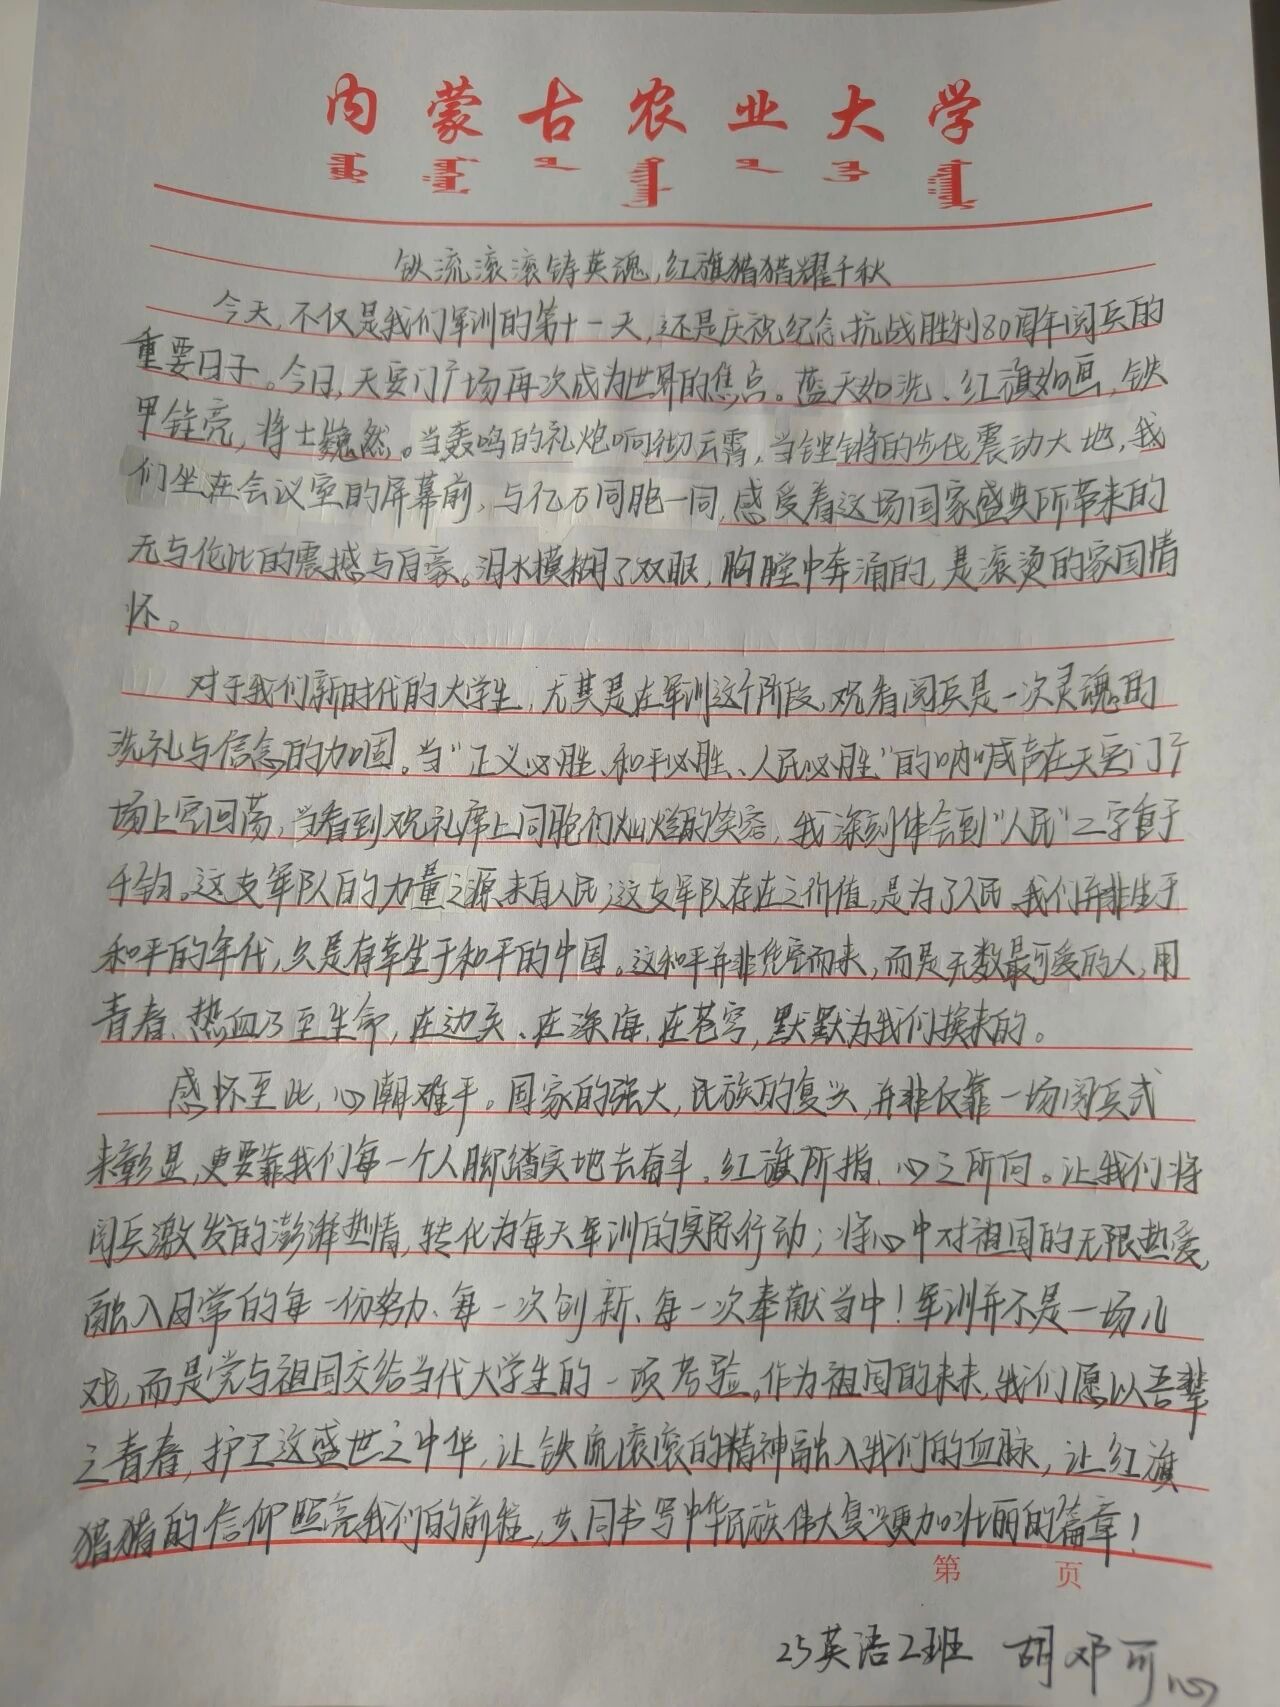 内蒙古农业大学
铁流滚滚铸英魂,红旗猎猎耀千秋
今天,不仅是我们军训的第十一天,还是庆祝纪念抗战胜利80周年阅兵的
重要日子。今日,天安门广场再次成为世界的焦点。蓝天如洗、红旗如画,铁
甲锃亮,将士巍然。当轰鸣的礼炮响彻云霄,当铿锵的步伐震动大地,我
们坐在会议室的屏幕前,与亿万同胞一同,感受着这场国家盛典所带来的
无与伦比的震撼与自豪。泪水模糊了双眼,胸膛中奔涌的,是滚烫的家国情
怀。
对于我们新时代的大学生,尤其是在军训这个阶段,观看阅兵是一次灵魂的
洗礼与信念的加固。当“正义必胜、和平必胜、人民必胜”的呐喊声在天安门广
场上空回荡,当看到观礼席上同胞们灿烂的笑容,我深刻体会到“人民”二字重于
千钧。这支军队的力量之源,来自人民;这支军队存在之价值,是为了人民。我们并非生于
和平的年代,只是有幸生于和平的中国。这和平并非凭空而来,而是无数最可爱的人,用
青春、热血乃至生命,在边关、在深海、在苍穹,默默为我们换来的。
感怀至此,心潮难平。国家的强大,民族的复兴,并非仅靠一场阅兵式
来彰显,更要靠我们每一个人脚踏实地去奋斗。红旗所指、心之所向。让我们将
阅兵激发的澎湃热情,转化为每天军训的实际行动;将心中对祖国的无限热爱,
融入日常的每一份努力、每一次创新、每一次奉献当中!军训并不是一场儿
戏,而是党与祖国交给当代大学生的一项考验。作为祖国的未来,我们愿以吾辈
之青春,护卫这盛世之中华,让铁流滚滚的精神融入我们的血脉,让红旗
猎猎的信仰照亮我们的前程,共同书写中华民族伟大复兴更加壮丽的篇章!
第 页
25英语2班 胡邓可心